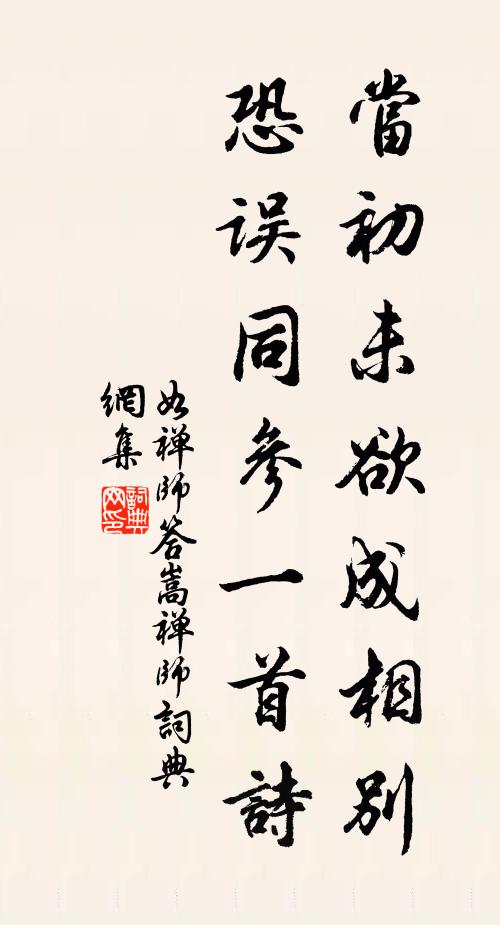 當初未欲成相別
恐誤同參一首詩
如禅師答嵩禅師詞典
網集
詞典网印